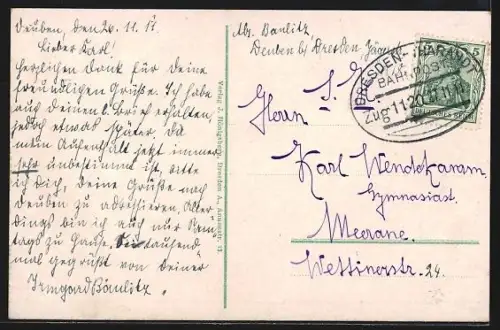 Deuben, den 26. 11. 11.
Lieber Karl!
Herzlichen Dank für Deine
freundlichen Grüße. Ich habe
auch Deinen l. Brief erhalten,
jedoch etwas später, da
mein Aufenthalt jetzt immer
sehr unbestimmt ist, bitte
ich Dich, Deine Grüße nach
Deuben zu adressieren, Aller-
dings bin ich auch nur Sonn-
tags zu Hause. Sei tausend
mal gegrüßt von Deiner
Irmgard Bänlitz.
Verlag J. Königsberg, Dresden A.
Abs. Banlitz
Deuben bei Dresden
DRESDEN-THARANDT
BAHNPOST
Zug 1120
5
Herrn
Karl Wendekamm,
Gymnasiast
Meerane.
Wettinerstr. 24.